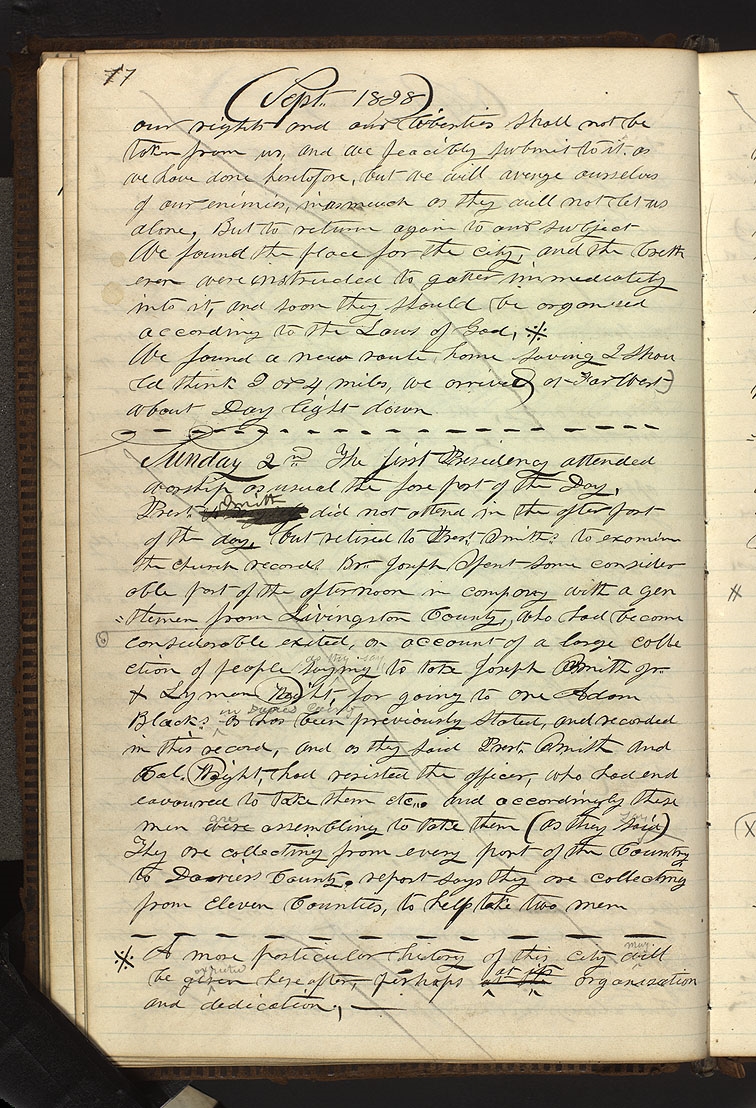 77
Sept. 1838
our rights and our Liberties shall not be
taken from us, and we peacibly submit to it. as
we have done heretofore, but we will avenge ourselves
of our enimies, inasmuch as they will not let us
alone, But to return again to our subject
We found the place for the city, and the breth
eren were instructed to gather immediately
into it, and soon they should be organised
according to the Laws of God, ※
We found a new route home saving I shou
ld think 3 or 4 miles, we arrived at Far West
about Day light down.
Sunday 2nd The first Presidency attended
worship as usual the fore part of the Day,
Prest. Smith did not attend in the after part
of the day, but retired to Prest. Smiths to examine
the church records. Br. Joseph Spent some consider
able part of the afternoon in company with a gen
=tlemen from Livingston County, who had become
considerable exited, on account of a large colle
ction of people saying to take Joseph Smith jr.
& Lyman Wight for going to one Adam
Blacks in Davies County as has been previously stated, and recorded
in this record, and as they said Prest. Smith and
Col. Wight, had resisted the officer, who had end
eavoured to take them etc., and accordingly these
men are were assembling to take them (as they said)
They are collecting from every part of the Country
to Daviess County, report says they are collecting
from Eleven Counties, to help take two men
※ A more particular history of this city may will
be given hereafter, perhaps at its at the organization
and dedication,